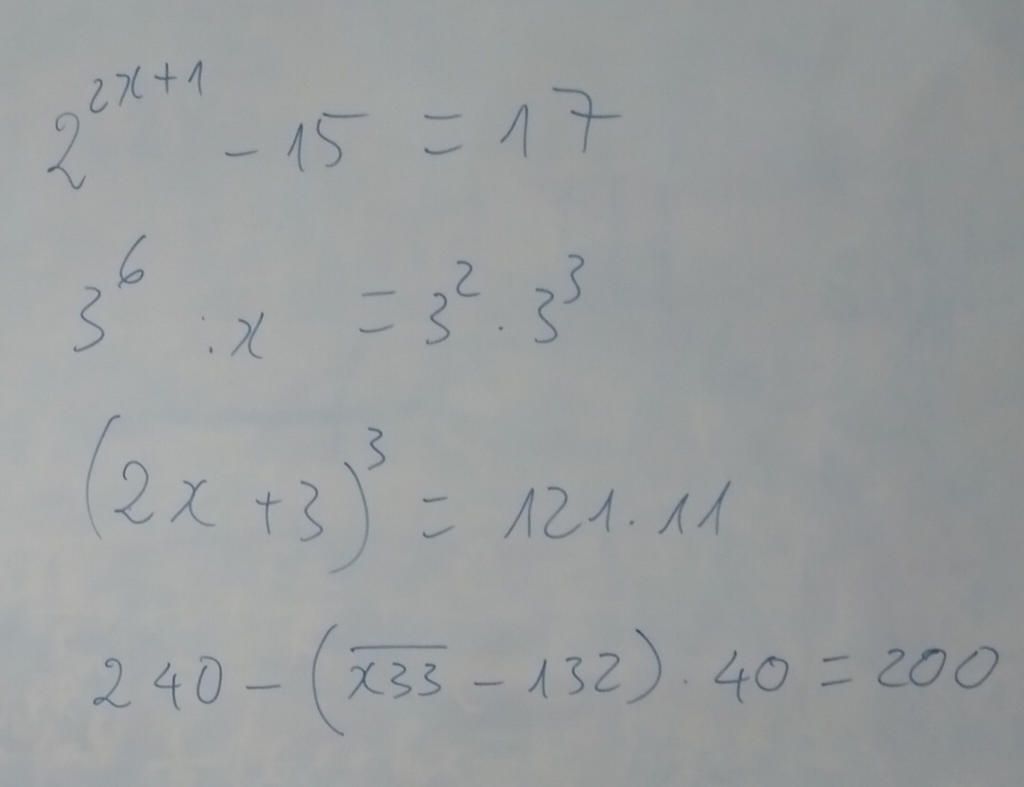 2^{2x+1} - 15 = 17
3^6 : x = 3^2 . 3^3
(2x + 3)^3 = 121 . 11
240 - (\overline{x33} - 132) . 40 = 200